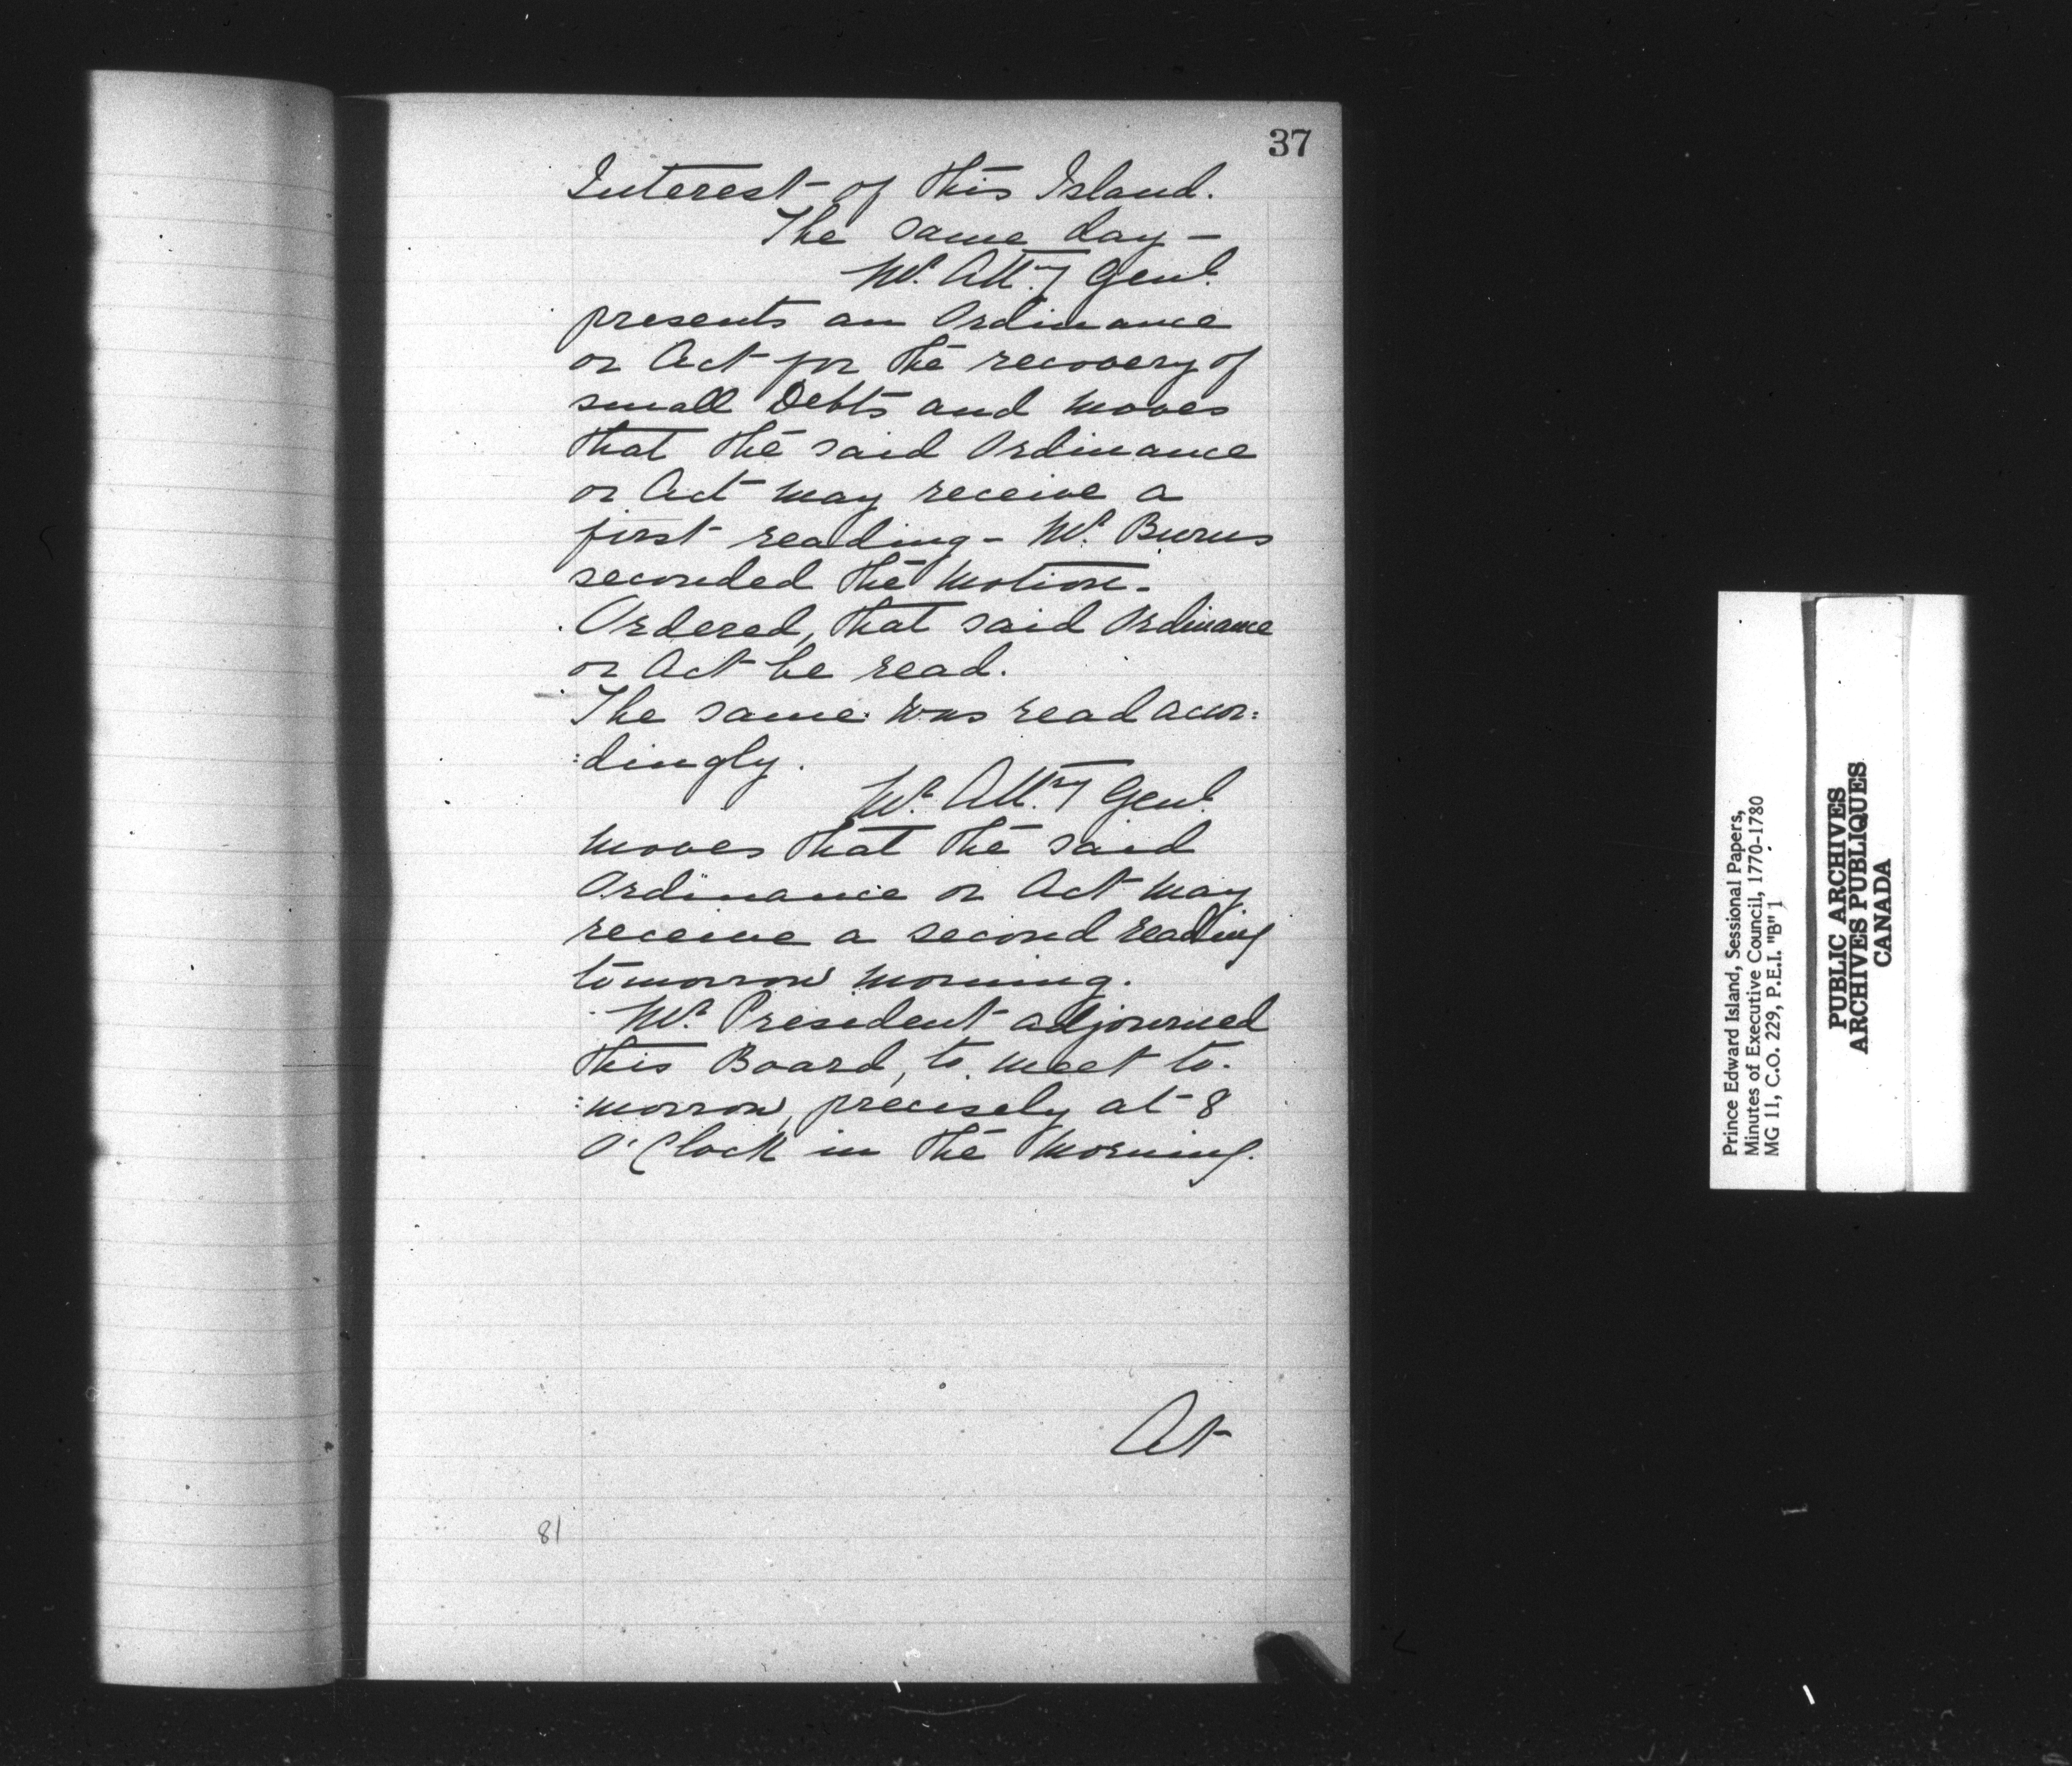 37
Interest of this Island.
The same day —
Mr. Atty. Genl.
presents an Ordinance
or Act for the recovery of
small Debts and moves
that the said Ordinance
or Act may receive a
first reading - Mr. Burns
seconded the motion -
Ordered, that said Ordinance
or Act be read.
The same was read accor:
:dingly.
Mr. Atty. Genl.
moves that the said
Ordinance or Act may
receive a second reading
tomorrow morning.
Mr. President adjourned
this Board, to meet to-
:morrow, precisely at 8
O'Clock in the Morning.
At
81
Prince Edward Island, Sessional Papers,
Minutes of Executive Council, 1770-1780
MG 11, C.O. 229, P.E.I. "B" 1
PUBLIC ARCHIVES
ARCHIVES PUBLIQUES
CANADA